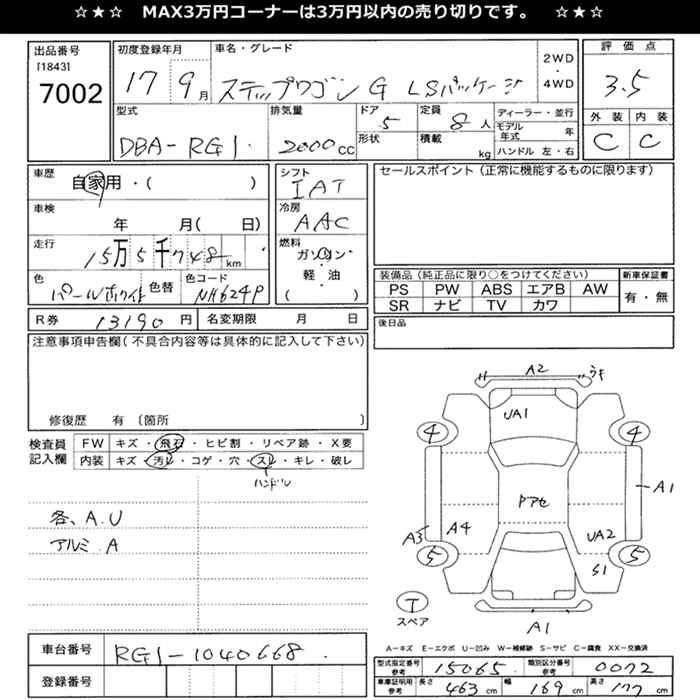 ★☆★ MAX3万円コーナーは3万円以内の売り切りです。 ☆★☆
出品番号
[1843]
7002
初度登録年月
17 9月
車名・グレード
ステップワゴン G LSパッケージ
2WD
・
4WD
評価点
3.5
外装 内装
C C
型式
DBA-RG1
排気量
2000cc
ドア
5
形状
定員
8人
積載
kg
ディーラー・並行
モデル年式 年
ハンドル 左・右
車歴
自家用・( )
車検
年 月( 日)
走行
15万5千748km
色
パールホワイト
色替
色コード
NH624P
シフト
IAT
冷房
AAC
燃料
ガソリン・
軽・油
( )
セールスポイント(正常に機能するものに限ります)
装備品(純正品に限り○をつけてください)
新車保証書
PS PW ABS エアB AW
SR ナビ TV カワ
有・無
R券 13190円
名変期限 月 日
後日品
注意事項申告欄(不具合内容等は具体的に記入して下さい)
修復歴 有 〔箇所 〕
検査員
記入欄
FW キズ・飛石・ヒビ割・リペア跡・X要
内装 キズ・汚レ・コゲ・穴・スレ・キレ・破レ
ハンドル
各、A.U
アルミ.A
A2
ウキ
UA1
4
4
A1
Pアセ
A3
A4
UA2
5
5
S1
T
スペア
A1
A-キズ E-エクボ U-凹み W-補修跡 S-サビ C-腐食 XX-交換済
車台番号
RG1-1040668
登録番号
型式指定番号
参考
15065
類別区分番号
参考
0072
車庫証明用
参考
長さ
463cm
幅
169cm
高さ
177cm